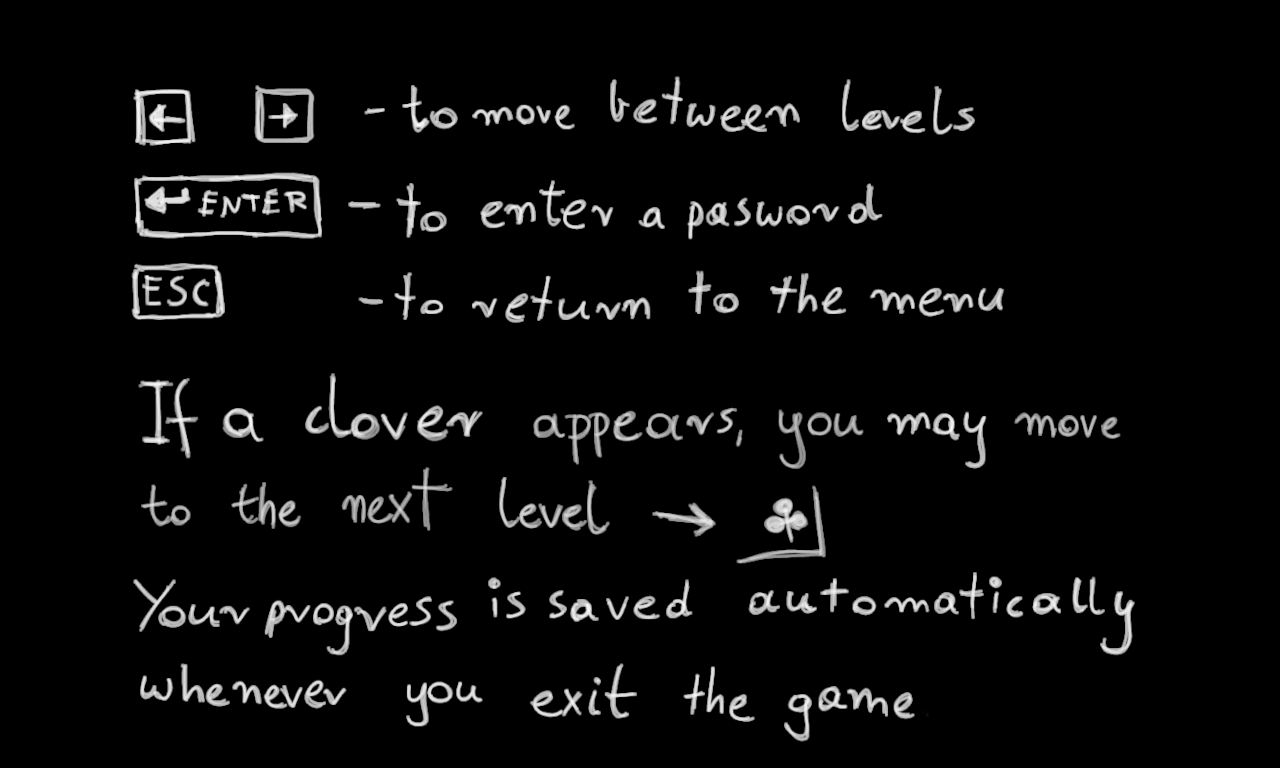 ← → - to move between levels
↵ ENTER - to enter a pasword
ESC - to return to the menu
If a clover appears, you may move
to the next level → ♣
Your progress is saved automatically
whenever you exit the game